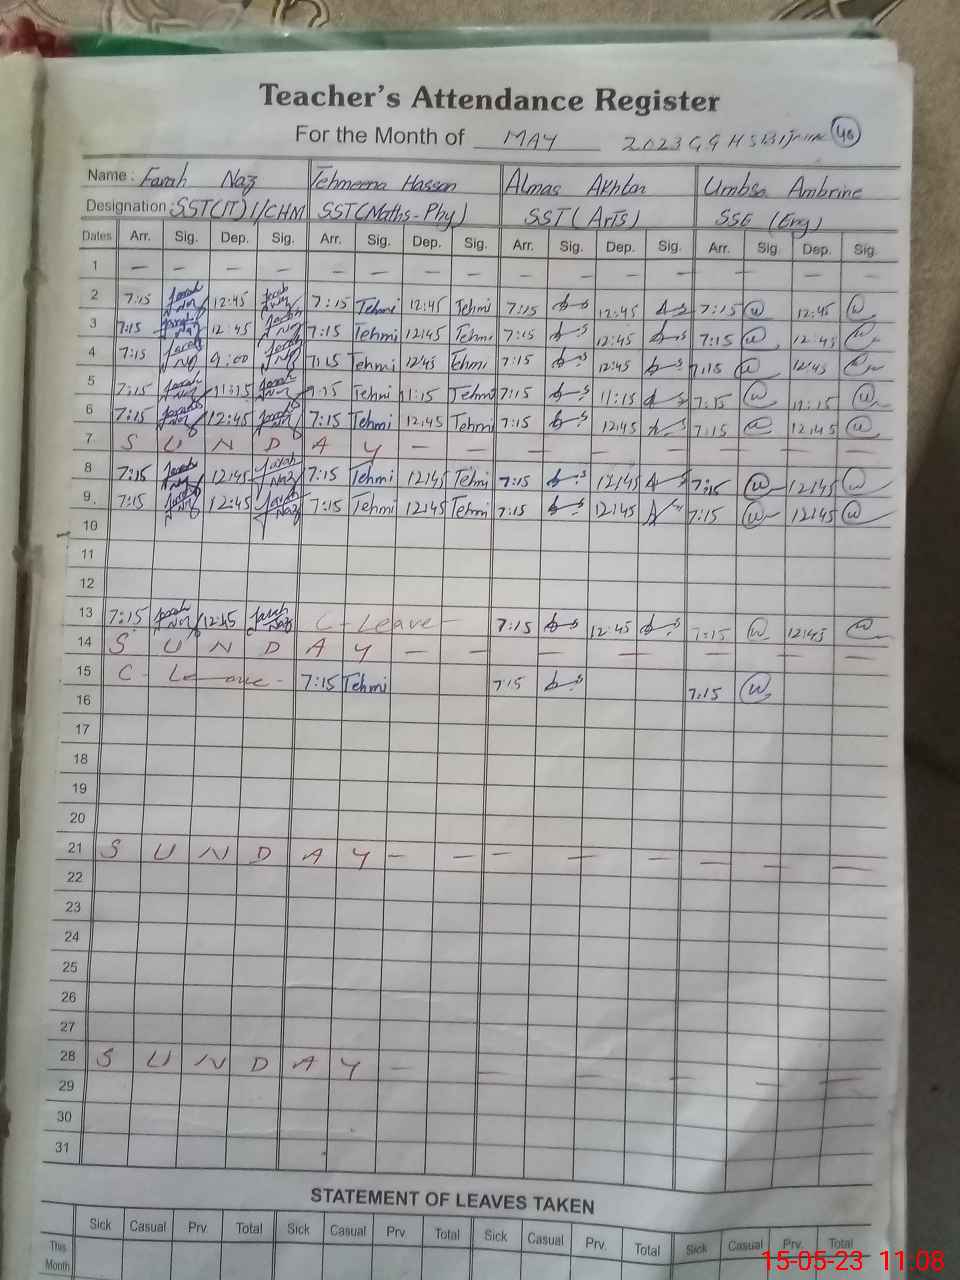 Teacher's Attendance Register
For the Month of MAY 2023 G G H S 46
Name : Farah Naz Tehmeena Hassan Almas Akhtar Umbsa Ambrine
Designation : SST(IT) I/CHM SST(Maths-Phy) SST (Arts) SSE (Eng)
Dates Arr. Sig. Dep. Sig. Arr. Sig. Dep. Sig. Arr. Sig. Dep. Sig. Arr. Sig Dep. Sig.
1 — — — — — — — — — — — — — — —
2 7:15 Farah Naz 12:45 Farah Naz 7:15 Tehmi 12:45 Tehmi 7:15 12:45 7:15 12:45
3 7:15 Farah Naz 12:45 Farah Naz 7:15 Tehmi 12:45 Tehmi 7:15 12:45 7:15 12:45
4 7:15 Farah Naz 9:00 Farah Naz 7:15 Tehmi 12:45 Tehmi 7:15 12:45 7:15 12:45
5 7:15 Farah Naz 11:15 Farah Naz 7:15 Tehmi 11:15 Tehmi 7:15 11:15 7:15 11:15
6 7:15 Farah Naz 12:45 Farah Naz 7:15 Tehmi 12:45 Tehmi 7:15 12:45 7:15 12:45
7 S U N D A Y — — — — — — — — —
8 7:15 Farah Naz 12:45 Farah Naz 7:15 Tehmi 12:45 Tehmi 7:15 12:45 7:15 12:45
9. 7:15 Farah Naz 12:45 Farah Naz 7:15 Tehmi 12:45 Tehmi 7:15 12:45 7:15 12:45
10
11
12
13 7:15 Farah Naz 12:45 Farah Naz C-Leave- 7:15 12:45 7:15 12:45
14 S U N D A Y — — — — — — — —
15 C- Leave- 7:15 Tehmi 7:15 7:15
16
17
18
19
20
21 S U N D A Y — — — — — — — — —
22
23
24
25
26
27
28 S U N D A Y — — — — — —
29
30
31
STATEMENT OF LEAVES TAKEN
Sick Casual Prv. Total Sick Casual Prv. Total Sick Casual Prv. Total Sick Casual Prv. Total
This
Month
15-05-23 11:08